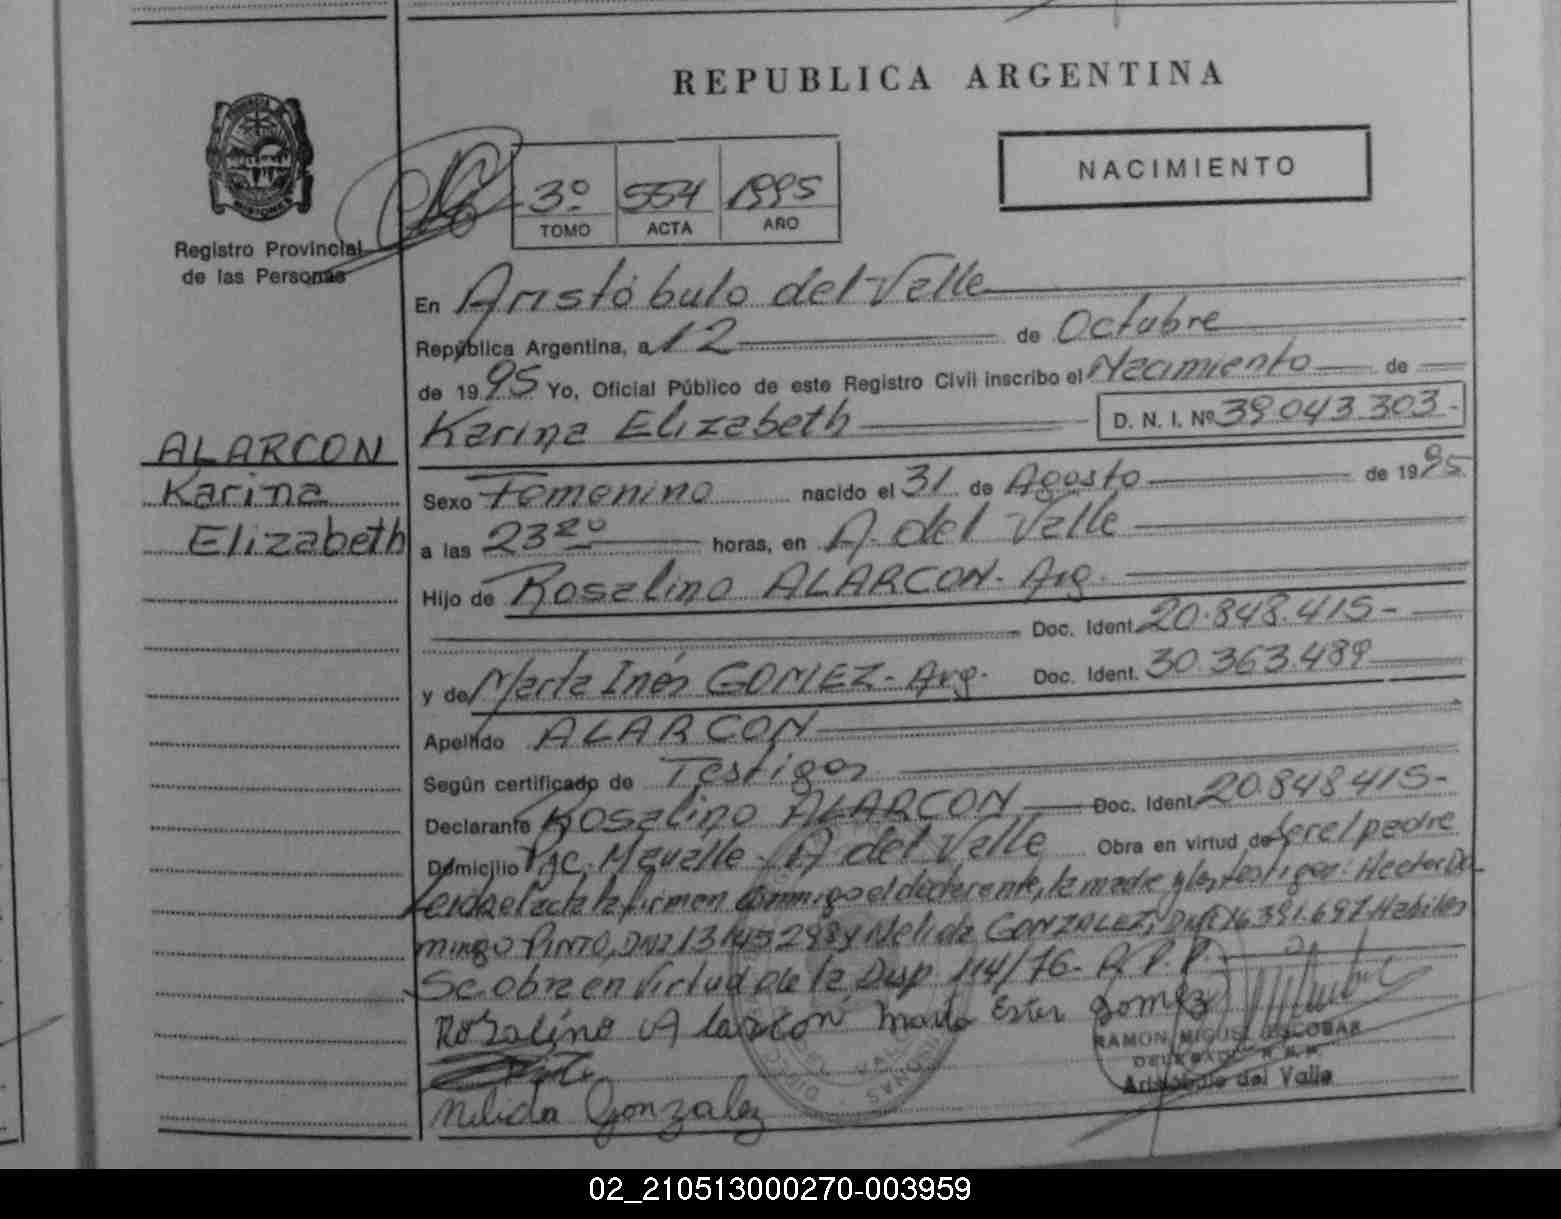 REPUBLICA ARGENTINA
MISIONES
Registro Provincial
de las Personas
NACIMIENTO
3º 554 1995
TOMO ACTA AÑO
En Aristóbulo del Valle
República Argentina, a 12 de Octubre
de 1995 Yo, Oficial Público de este Registro Civil inscribo el Nacimiento de
Karina Elizabeth D. N. I. Nº 39.043.303-
ALARCON
Karina
Elizabeth
Sexo Femenino nacido el 31 de Agosto de 1995
a las 23 20 horas, en A. del Valle
Hijo de Rosalino ALARCON- Arg.
Doc. Ident. 20.848.415-
y de Marta Inés GOMEZ- Arg. Doc. Ident. 30.363.489
Apellido ALARCON
Según certificado de Testigos
Declarante Rosalino ALARCON Doc. Ident. 20.848.415-
Domicilio A del Valle Obra en virtud de ser el padre
Leida el acta la firman conmigo el declarante, la madre y los testigos: Hector Do-
mingo PINTO, DNI Nelida GONZALEZ, DNI 16.391.697 Habiles
Se obra en virtud de la Disp. 114/76- R.P.P.
Rosalino Alarcon Marta Ester gomez
RAMON MIGUEL ESCOBAR
Aristóbulo del Valle
Nelida Gonzalez
02_210513000270-003959